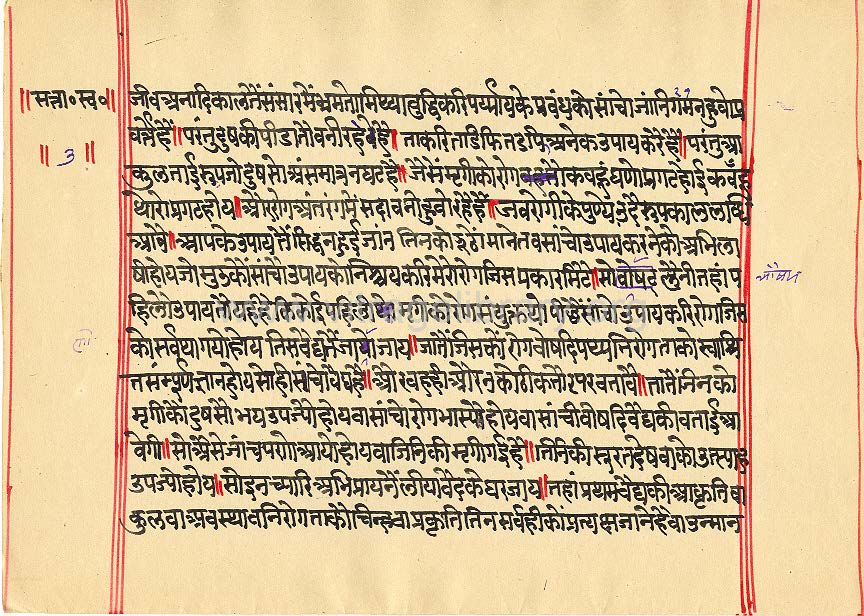 ॥सत्ता॰स्व॰॥
॥ ३ ॥
जीवअनादिकालतैंसंसारमेंभ्रमतामिथ्याबुद्धिकरिपर्य्यायकेप्रबंधकोसांचोजांनिगमनहुवोप्र
वर्त्तैहैं॥परंतुदुषकीपीडातौवनीरहैहै॥ताकरितडफितडफिअनेकउपायकरैहैं॥परंतुआ
कुलताईरूपजोदुषसोअंसमात्रनघटैहैं॥जैसेंमृगीकोरोगकबहूंघणोप्रगटहोईकबहूं
थोराप्रगटहोय॥औरोगअंतरंगमेंसदावनोहुवोरहैहैं॥जवरोगीकेपुण्यउदैरूपकाललब्धि
आवै॥आपकेउपायतैंसिद्धनहुईजानैतिनकोझूठामानैतवसांचोउपायकरनेकोअभिला
षीहोयजोमुउकोंसांचोउपायकोनिश्चयकरिमेरोरोगजिसप्रकारमिटै॥सोवोषदलेंनीतहांप
हिलेउपायतौयहहैकि
कोसर्वथागयोहोयतिसवैद्यनैंजायोजाय॥जातैंजिसकोंरोगवोषदिपथ्यनिरोगताकोस्वाश्रि
तसंम्पूर्णज्ञानहोयसोहीसांचोवैद्यहै॥
मृगीकोंदुषसोंभयउपज्योहोयवासांचोरोगभास्योहोयवासांचीवोषदिवैद्यकीवताईआ
वेगी॥सोऔसेजांचपणोआयोहोयवाजिनिकीमृगीगईहैं॥तिनिकीसूरतदेषवाकोउत्साह
उपज्योहोय॥सोइनच्यारिअभिप्रायनैंलीयांवैदकेघरजाय॥तहांप्रथमवैद्यकीआकृतिवा
कुलवाअवस्थावनिरोगताकोचिन्हवाप्रकृतितिनसर्वहीकोंप्रत्यक्षजानेहैवाउन्मान